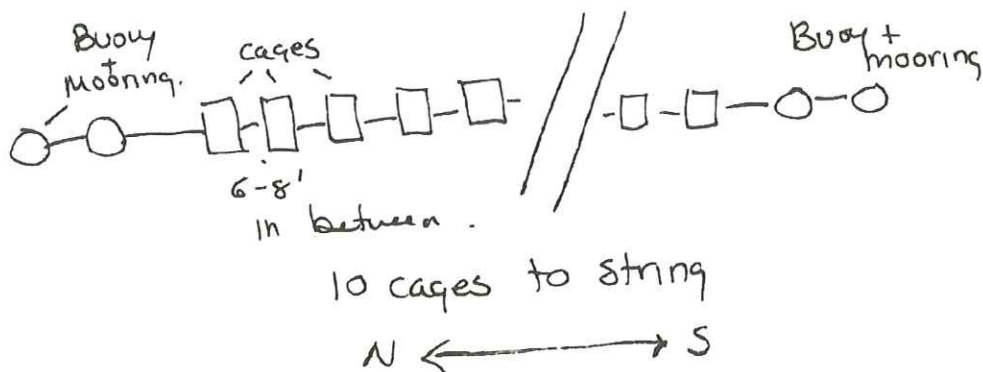 Buoy
+
Mooring.
cages
Buoy +
mooring
6-8'
in between.
10 cages to string
N S